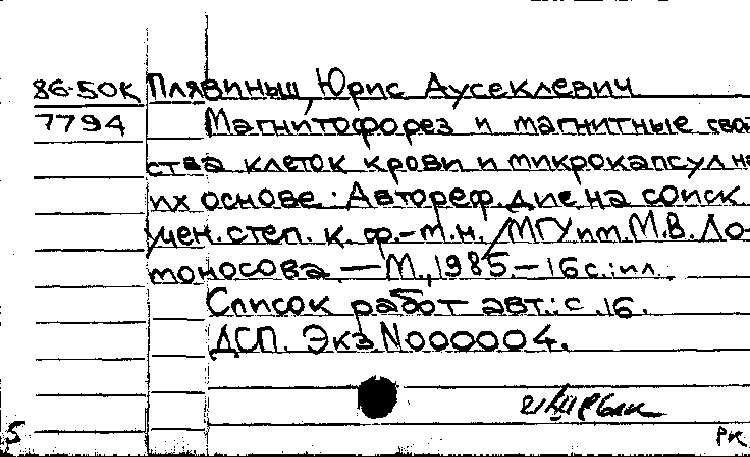 86-50К Плявиньш, Юрис Аусеклевич
7794 Магнитофорез и магнитные свой
ства клеток крови и микрокапсул на
их основе : Автореф. дис. на соиск
учен. степ. к. ф.-м.н. / МГУ им. М.В. Ло-
моносова. — М., 1985. — 16 с. : ил.
Список работ авт.: с. 16.
ДСП. Экз. N000004.
5
РК